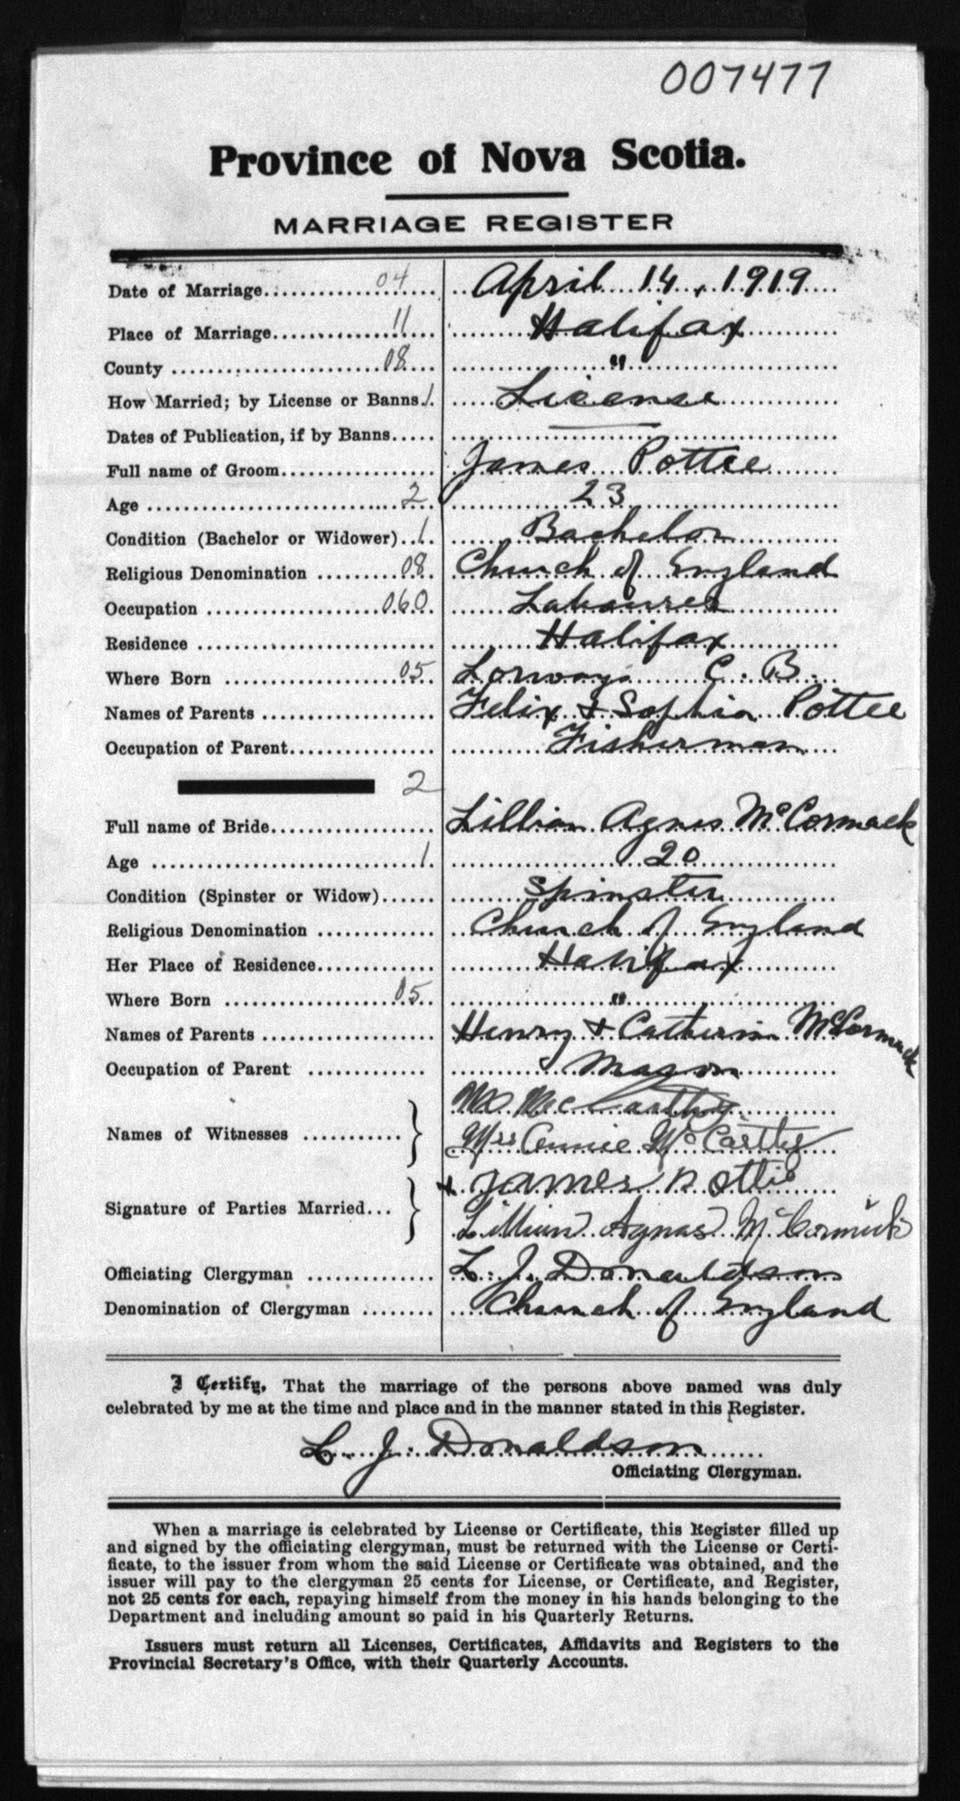 007477
Province of Nova Scotia.
MARRIAGE REGISTER
Date of Marriage 04 April 14, 1919
Place of Marriage 11 Halifax
County 08 "
How Married; by License or Banns 1 License
Dates of Publication, if by Banns —
Full name of Groom James Pottee
Age 2 23
Condition (Bachelor or Widower) 1 Bachelor
Religious Denomination 08 Church of England
Occupation 060 Labourer
Residence Halifax
Where Born 05 Lorways C. B.
Names of Parents Felix & Sophia Pottee
Occupation of Parent Fisherman
2
Full name of Bride Lillian Agnes McCormack
Age 1 20
Condition (Spinster or Widow) Spinster
Religious Denomination Church of England
Her Place of Residence Halifax
Where Born 05 "
Names of Parents Henry & Catherin McCormack
Occupation of Parent Mason
Names of Witnesses McCarthy
Mrs Annie McCarthy
Signature of Parties Married x James Pottie
Lillian Agnas McCormick
Officiating Clergyman L. J. Donaldson
Denomination of Clergyman Church of England
I Certify, That the marriage of the persons above named was duly
celebrated by me at the time and place and in the manner stated in this Register.
L. J. Donaldson
Officiating Clergyman.
When a marriage is celebrated by License or Certificate, this Register filled up
and signed by the officiating clergyman, must be returned with the License or Certi-
ficate, to the issuer from whom the said License or Certificate was obtained, and the
issuer will pay to the clergyman 25 cents for License, or Certificate, and Register,
not 25 cents for each, repaying himself from the money in his hands belonging to the
Department and including amount so paid in his Quarterly Returns.
Issuers must return all Licenses, Certificates, Affidavits and Registers to the
Provincial Secretary's Office, with their Quarterly Accounts.